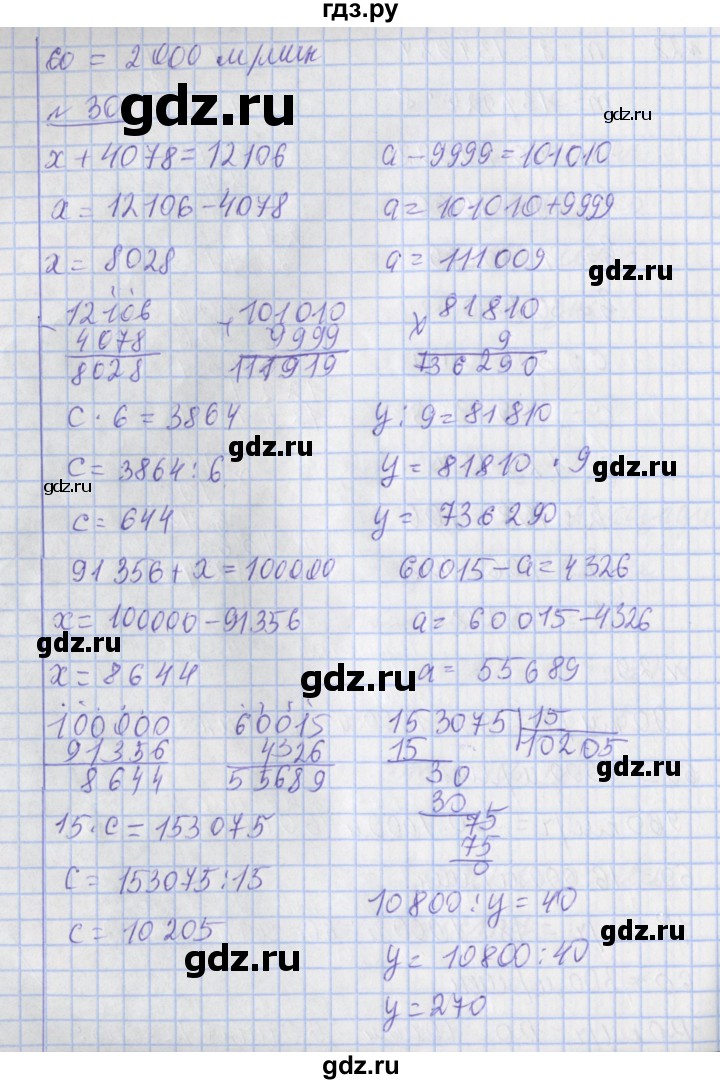 гдз.ру
60 = 2 000 м/мин
gdz.ru
gdz.ru
x + 4078 = 12106
a - 9999 = 101010
x = 12106 - 4078
a = 101010 + 9999
x = 8028
a = 111009
gdz.ru
12106
4078
8028
101010
9999
111919
× 81810
9
736290
c · 6 = 3864
y : 9 = 81810
gdz.ru
c = 3864 : 6
y = 81810 · 9
gdz.ru
gdz.ru
c = 644
y = 736290
91356 + x = 100000
60015 - a = 4326
x = 100000 - 91356
a = 60015 - 4326
gdz.ru
x = 8644
a = 55689
gdz.ru
100000
91356
8644
60015
4326
55689
153075 15
15 10205
30
30
75
75
0
gdz.ru
15 · c = 153075
c = 153075 : 15
c = 10205
10800 : y = 40
gdz.ru
y = 10800 : 40
gdz.ru
y = 270
gdz.ru